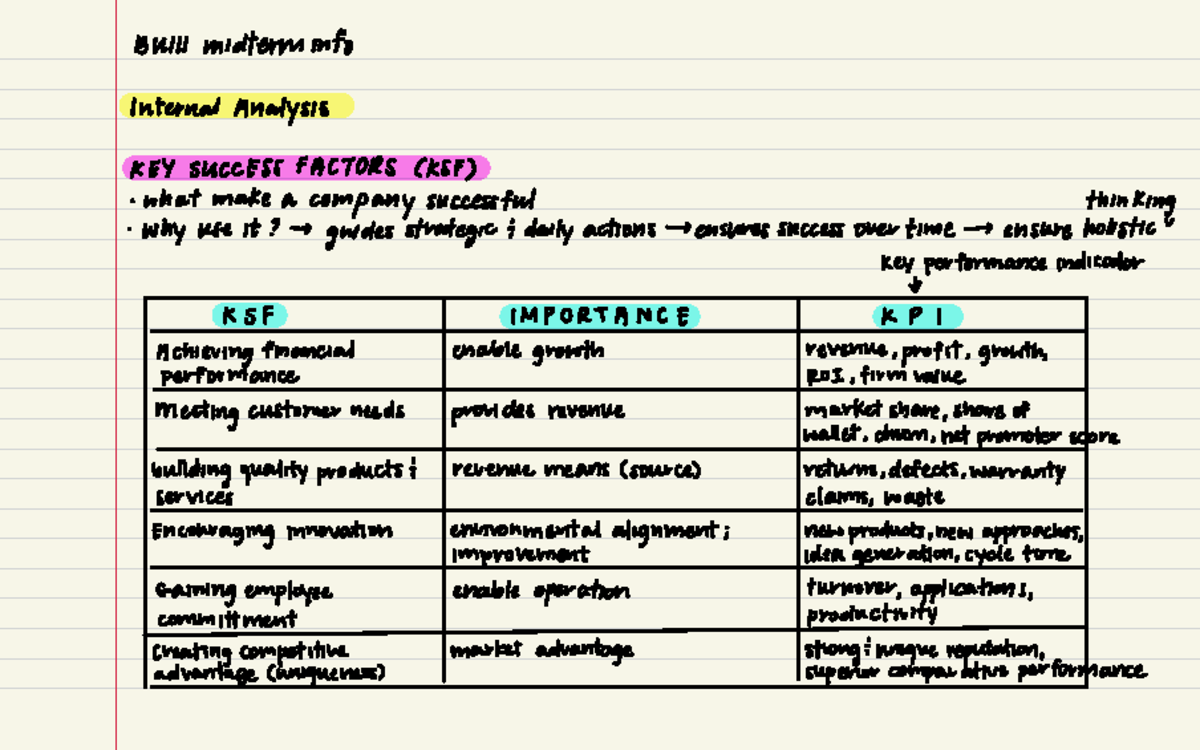 BU111 midterm info
Internal Analysis
KEY SUCCESS FACTORS (KSF)
· what make a company successful
thinking
· why use it? → guides strategic & daily actions → ensures success over time → ensure holistic
key performance indicator
↓
KSF IMPORTANCE KPI
Achieving financial enable growth revenue, profit, growth,
performance ROI, firm value
Meeting customer needs provides revenue market share, share of
wallet, churn, net promoter score
building quality products & revenue means (source) returns, defects, warranty
services claims, waste
Encouraging innovation environmental alignment & new products, new approaches,
improvement idea generation, cycle time
Gaining employee enable operation turnover, applications,
committment productivity
Creating competitive market advantage strong & unique reputation,
advantage (uniqueness) superior comparative performance